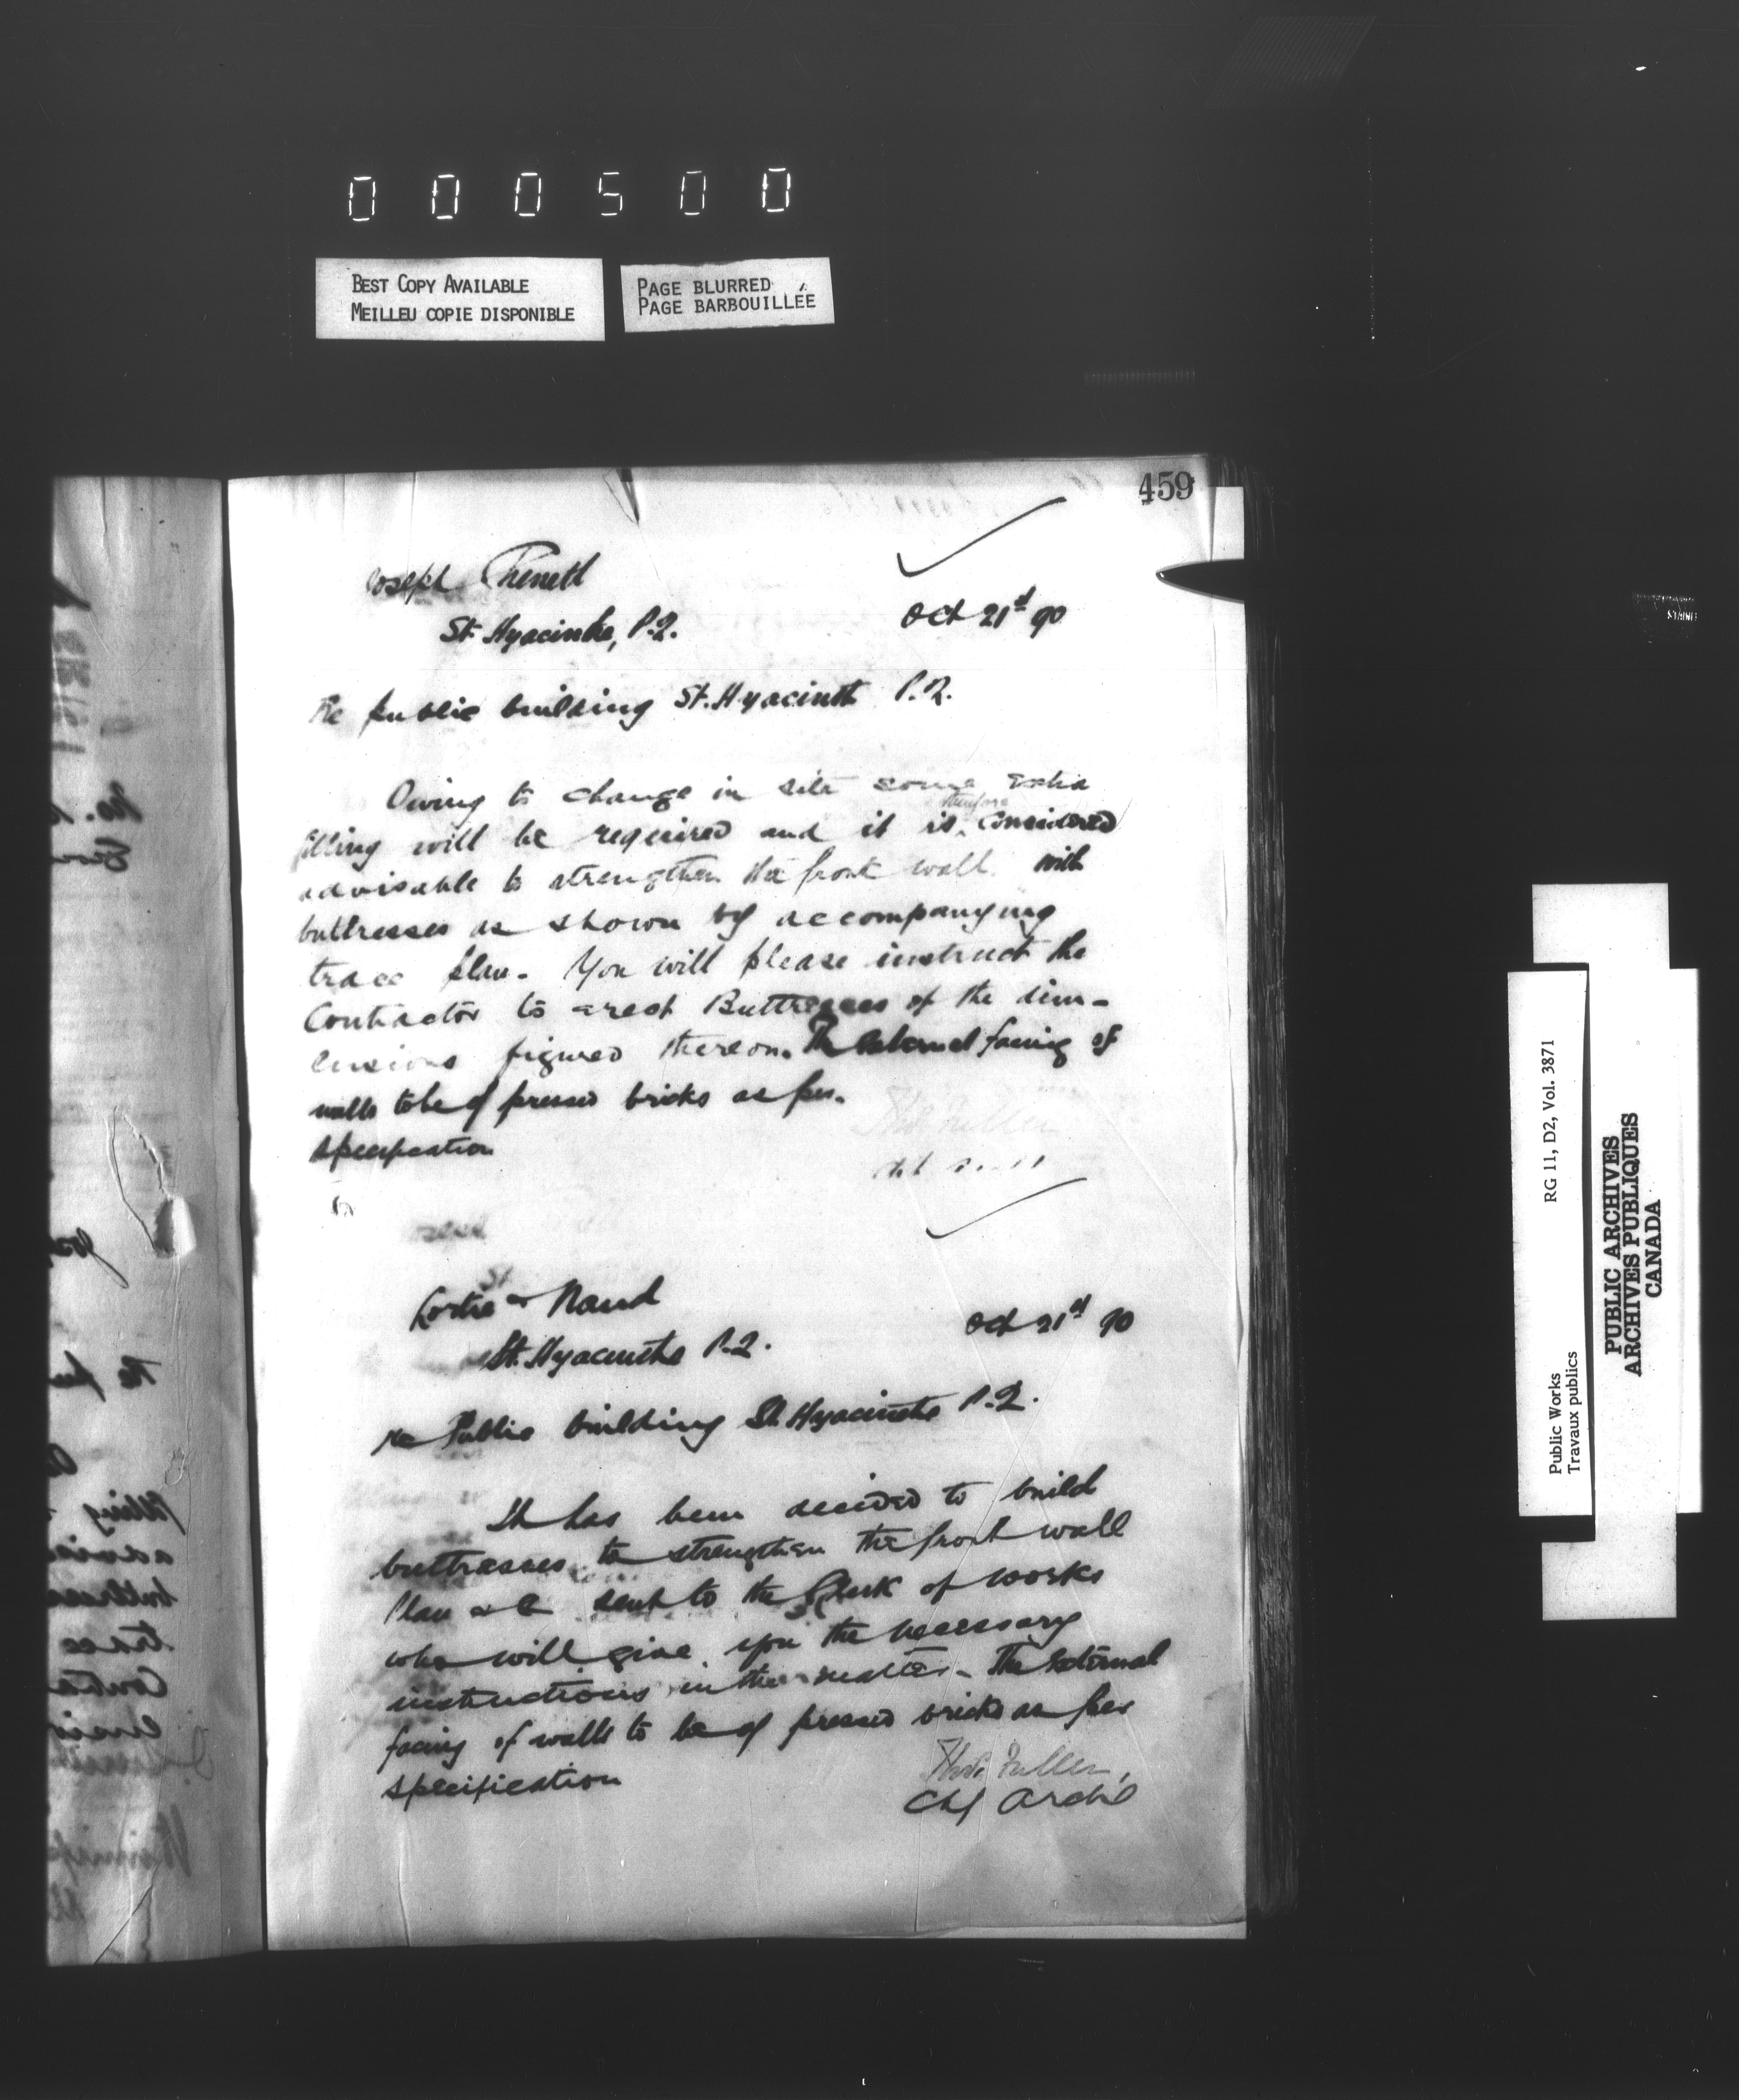 000500
BEST COPY AVAILABLE
MEILLEU COPIE DISPONIBLE
PAGE BLURRED
PAGE BARBOUILLÉE
459
Joseph
St. Hyacinthe, P.Q.
Oct 21st 90
Re public building St. Hyacinth P.Q.
Owing to change in site some extra
filling will be required and it is therefore considered
advisable to strengthen the front wall with
buttresses as shown by accompanying
trace plan. You will please instruct the
Contractor to erect Buttresses of the dim-
ensions figured thereon. The External facing of
walls to be of pressed bricks as per
specification
Thos. Fuller
St
& Naud
St. Hyacinthe P.Q.
Oct 21st 90
Re Public building St. Hyacinthe P.Q.
It has been decided to build
buttresses to strengthen the front wall
Plan &c sent to the Clerk of works
who will give you the necessary
instructions in the matter - The External
facing of walls to be of pressed bricks as per
specification
Thos. Fuller,
Chf Archt
Public Works
Travaux publics
RG 11, D2, Vol. 3871
PUBLIC ARCHIVES
ARCHIVES PUBLIQUES
CANADA